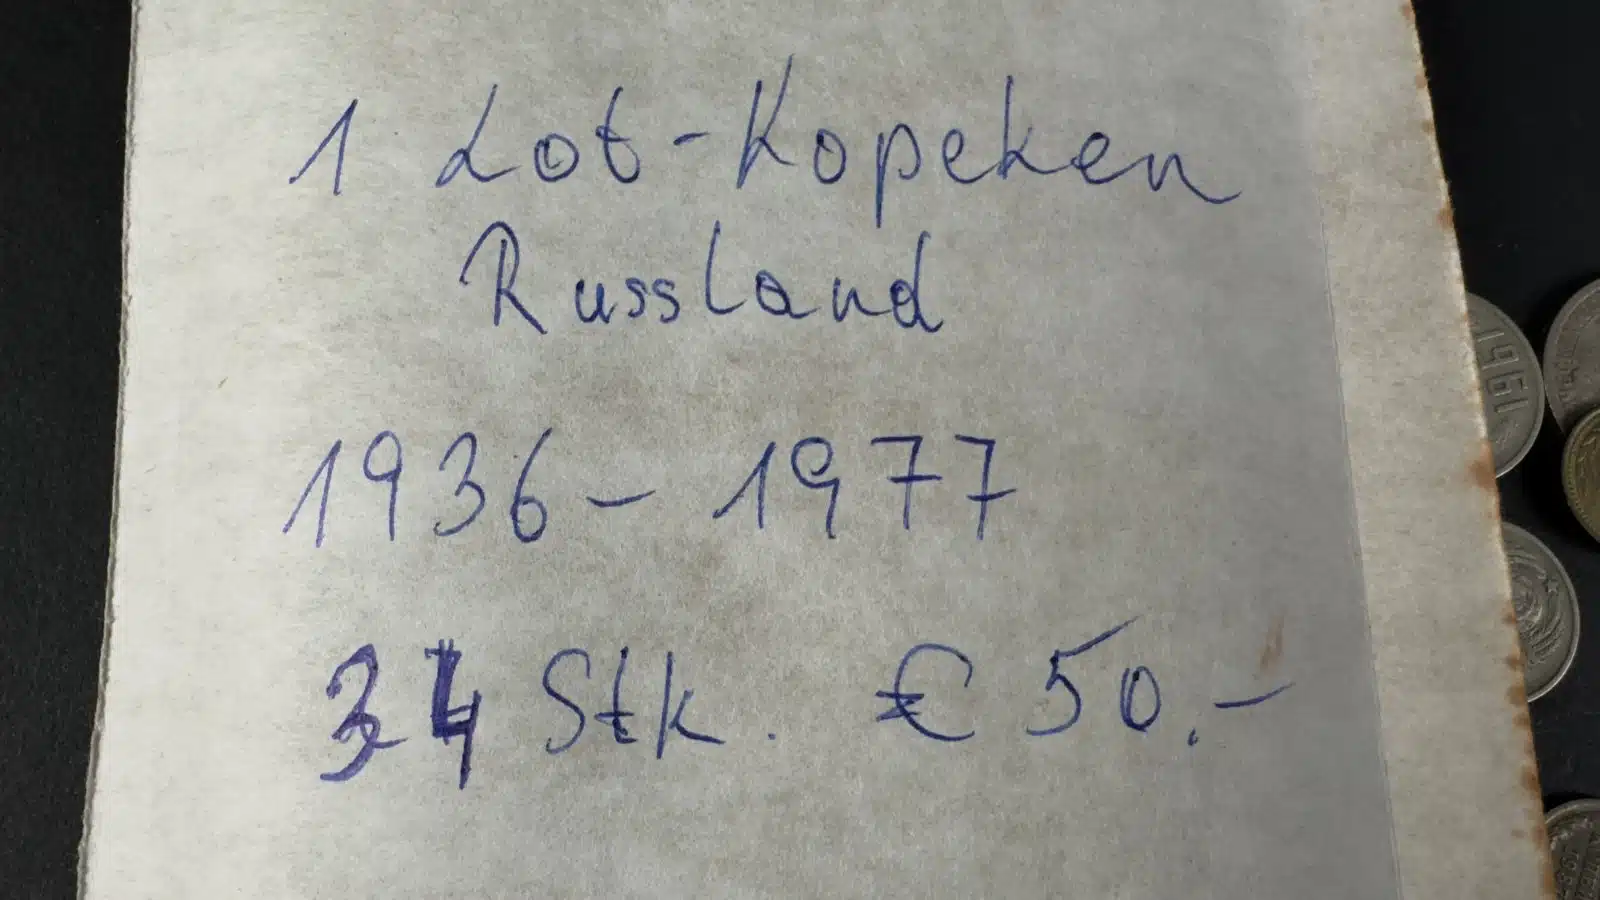 1 Lot-Kopeken
Russland
1936-1977
34 Stk. € 50.-
1961